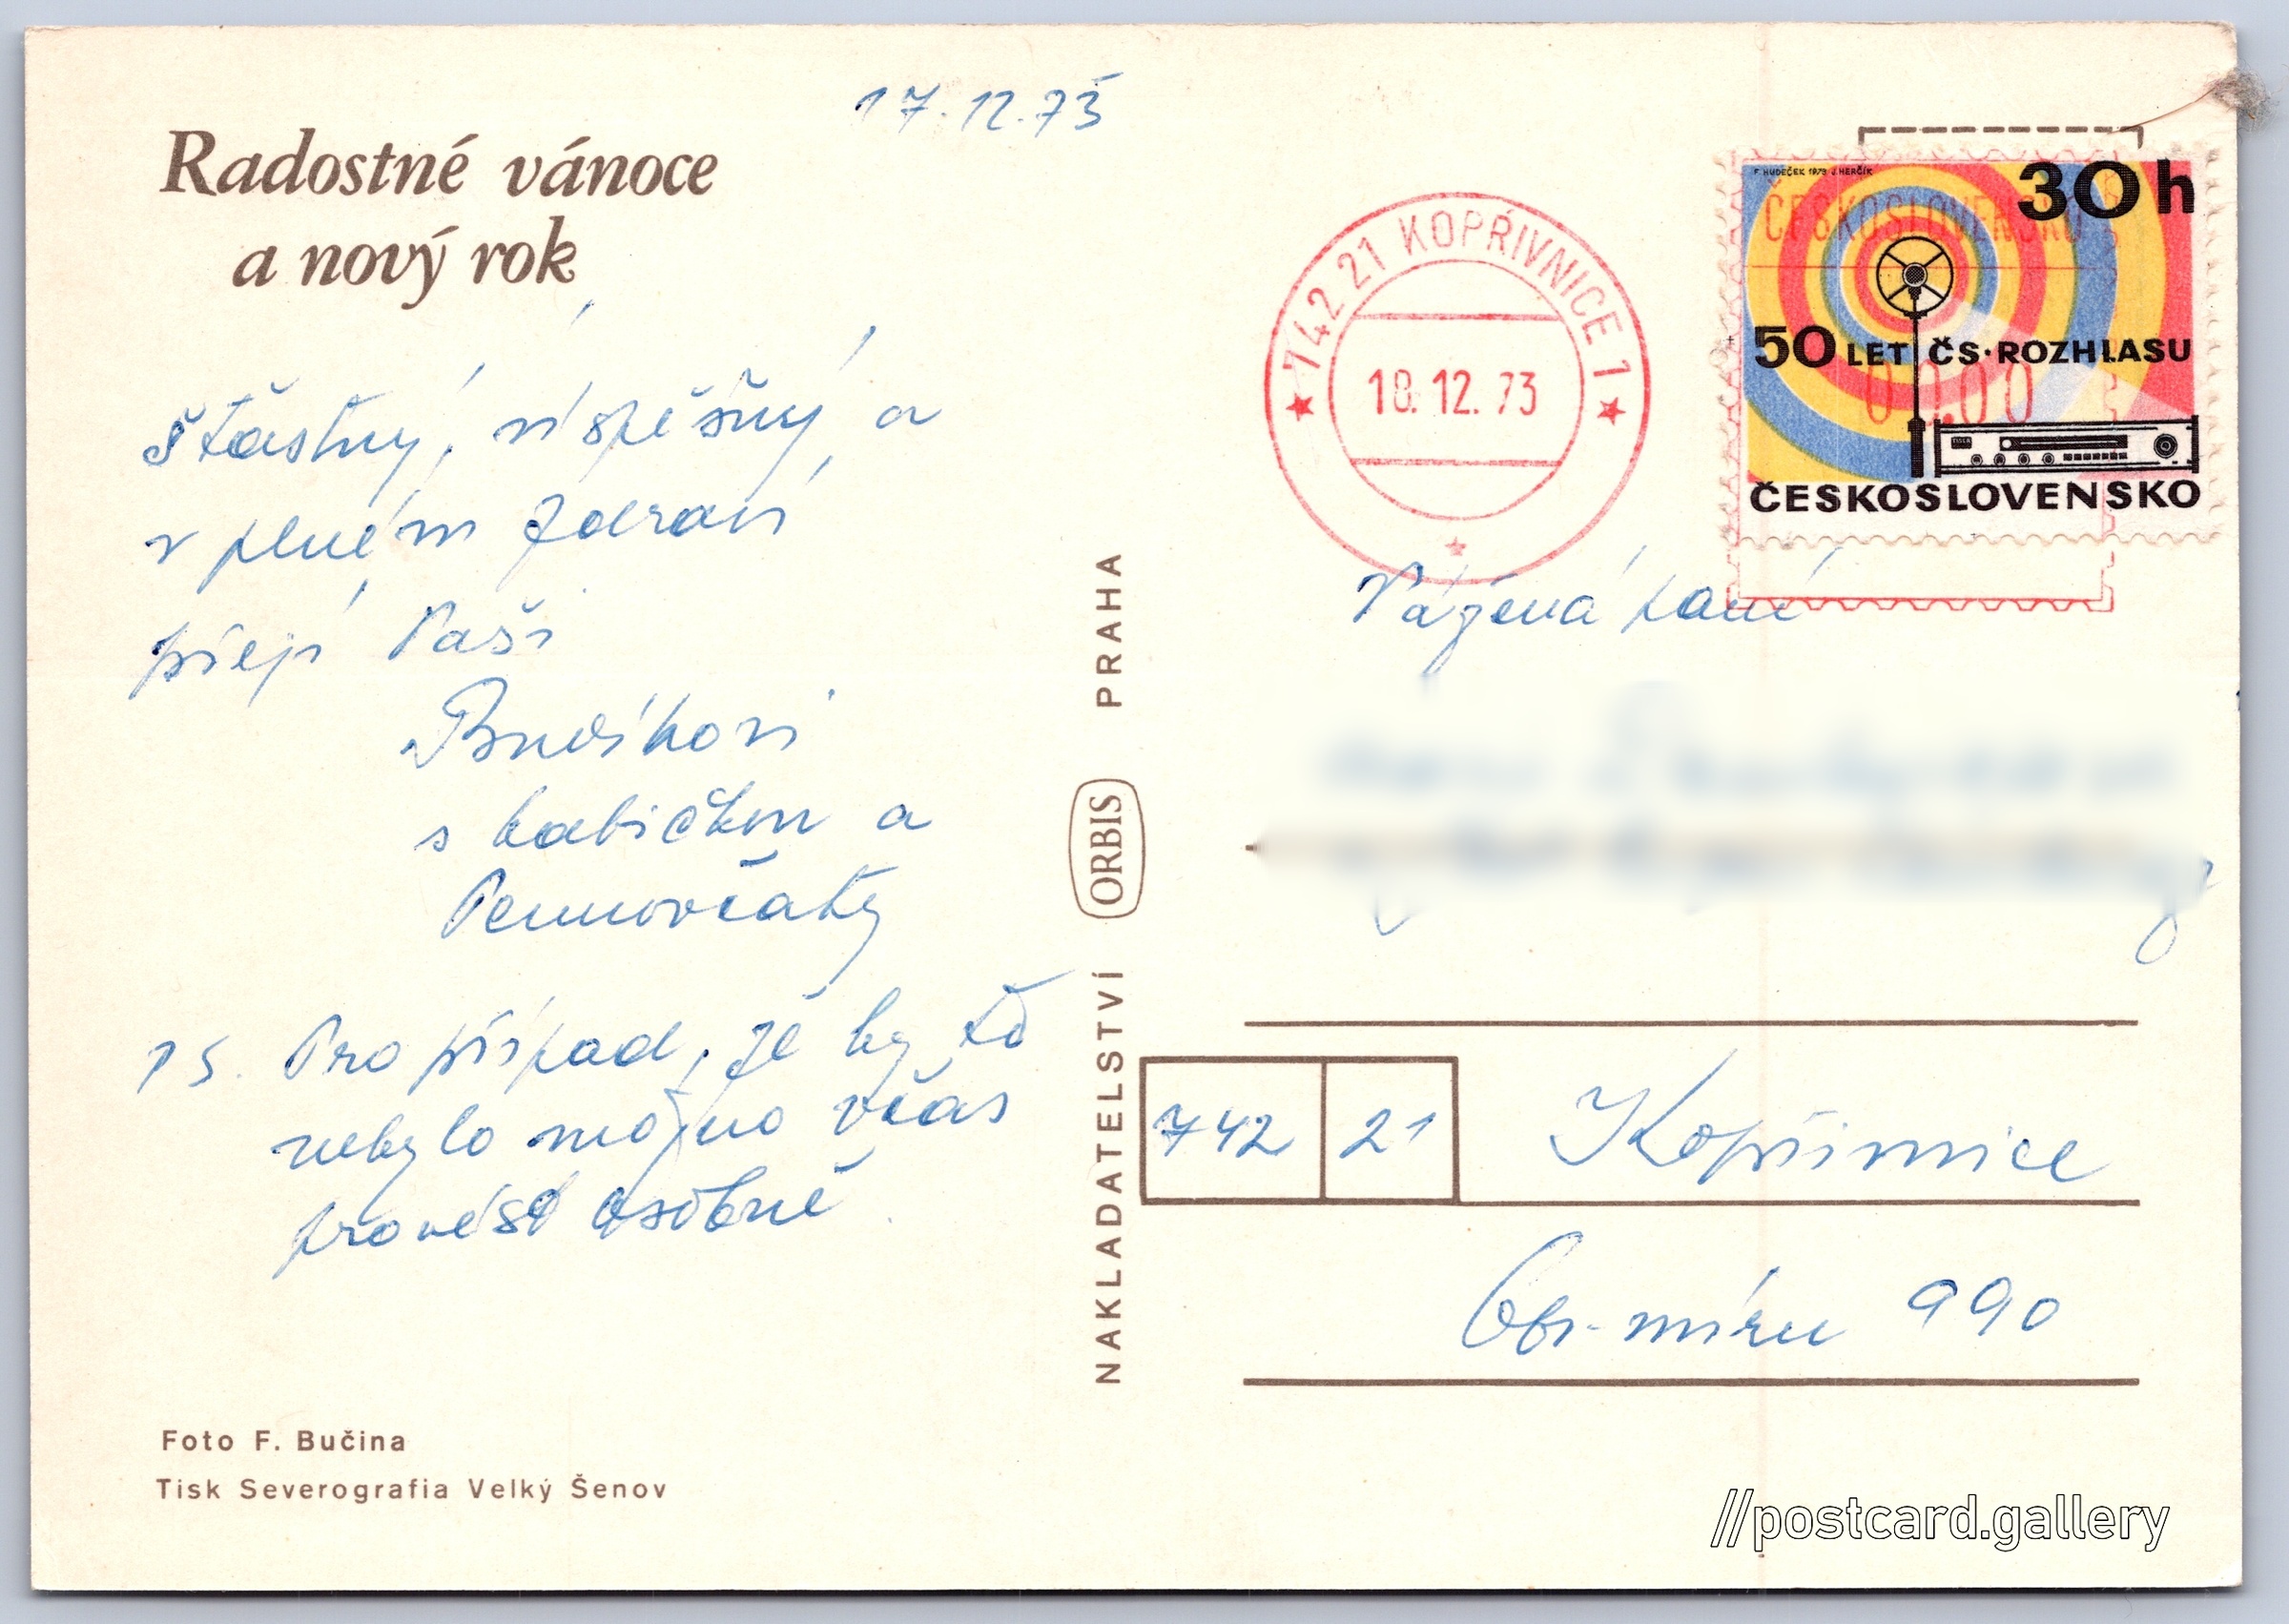 17.12.73
Radostné vánoce
a nový rok
Šťastný, úspěšný a
v plném zdraví
přejí Vaši
s babičkou a
PS. Pro případ, že by to
nebylo možno včas
provést osobně
Foto F. Bučina
Tisk Severografia Velký Šenov
NAKLADATELSTVÍ ORBIS PRAHA
742 21 KOPŘIVNICE 1
18.12.73
F. HUDEČEK 1973 J. HERČÍK
30h
ČESKOSLOVENSKO
50 LET ČS·ROZHLASU
00.00
ČESKOSLOVENSKO
Vážená paní
742 21 Kopřivnice
Obr. míru 990
//postcard.gallery